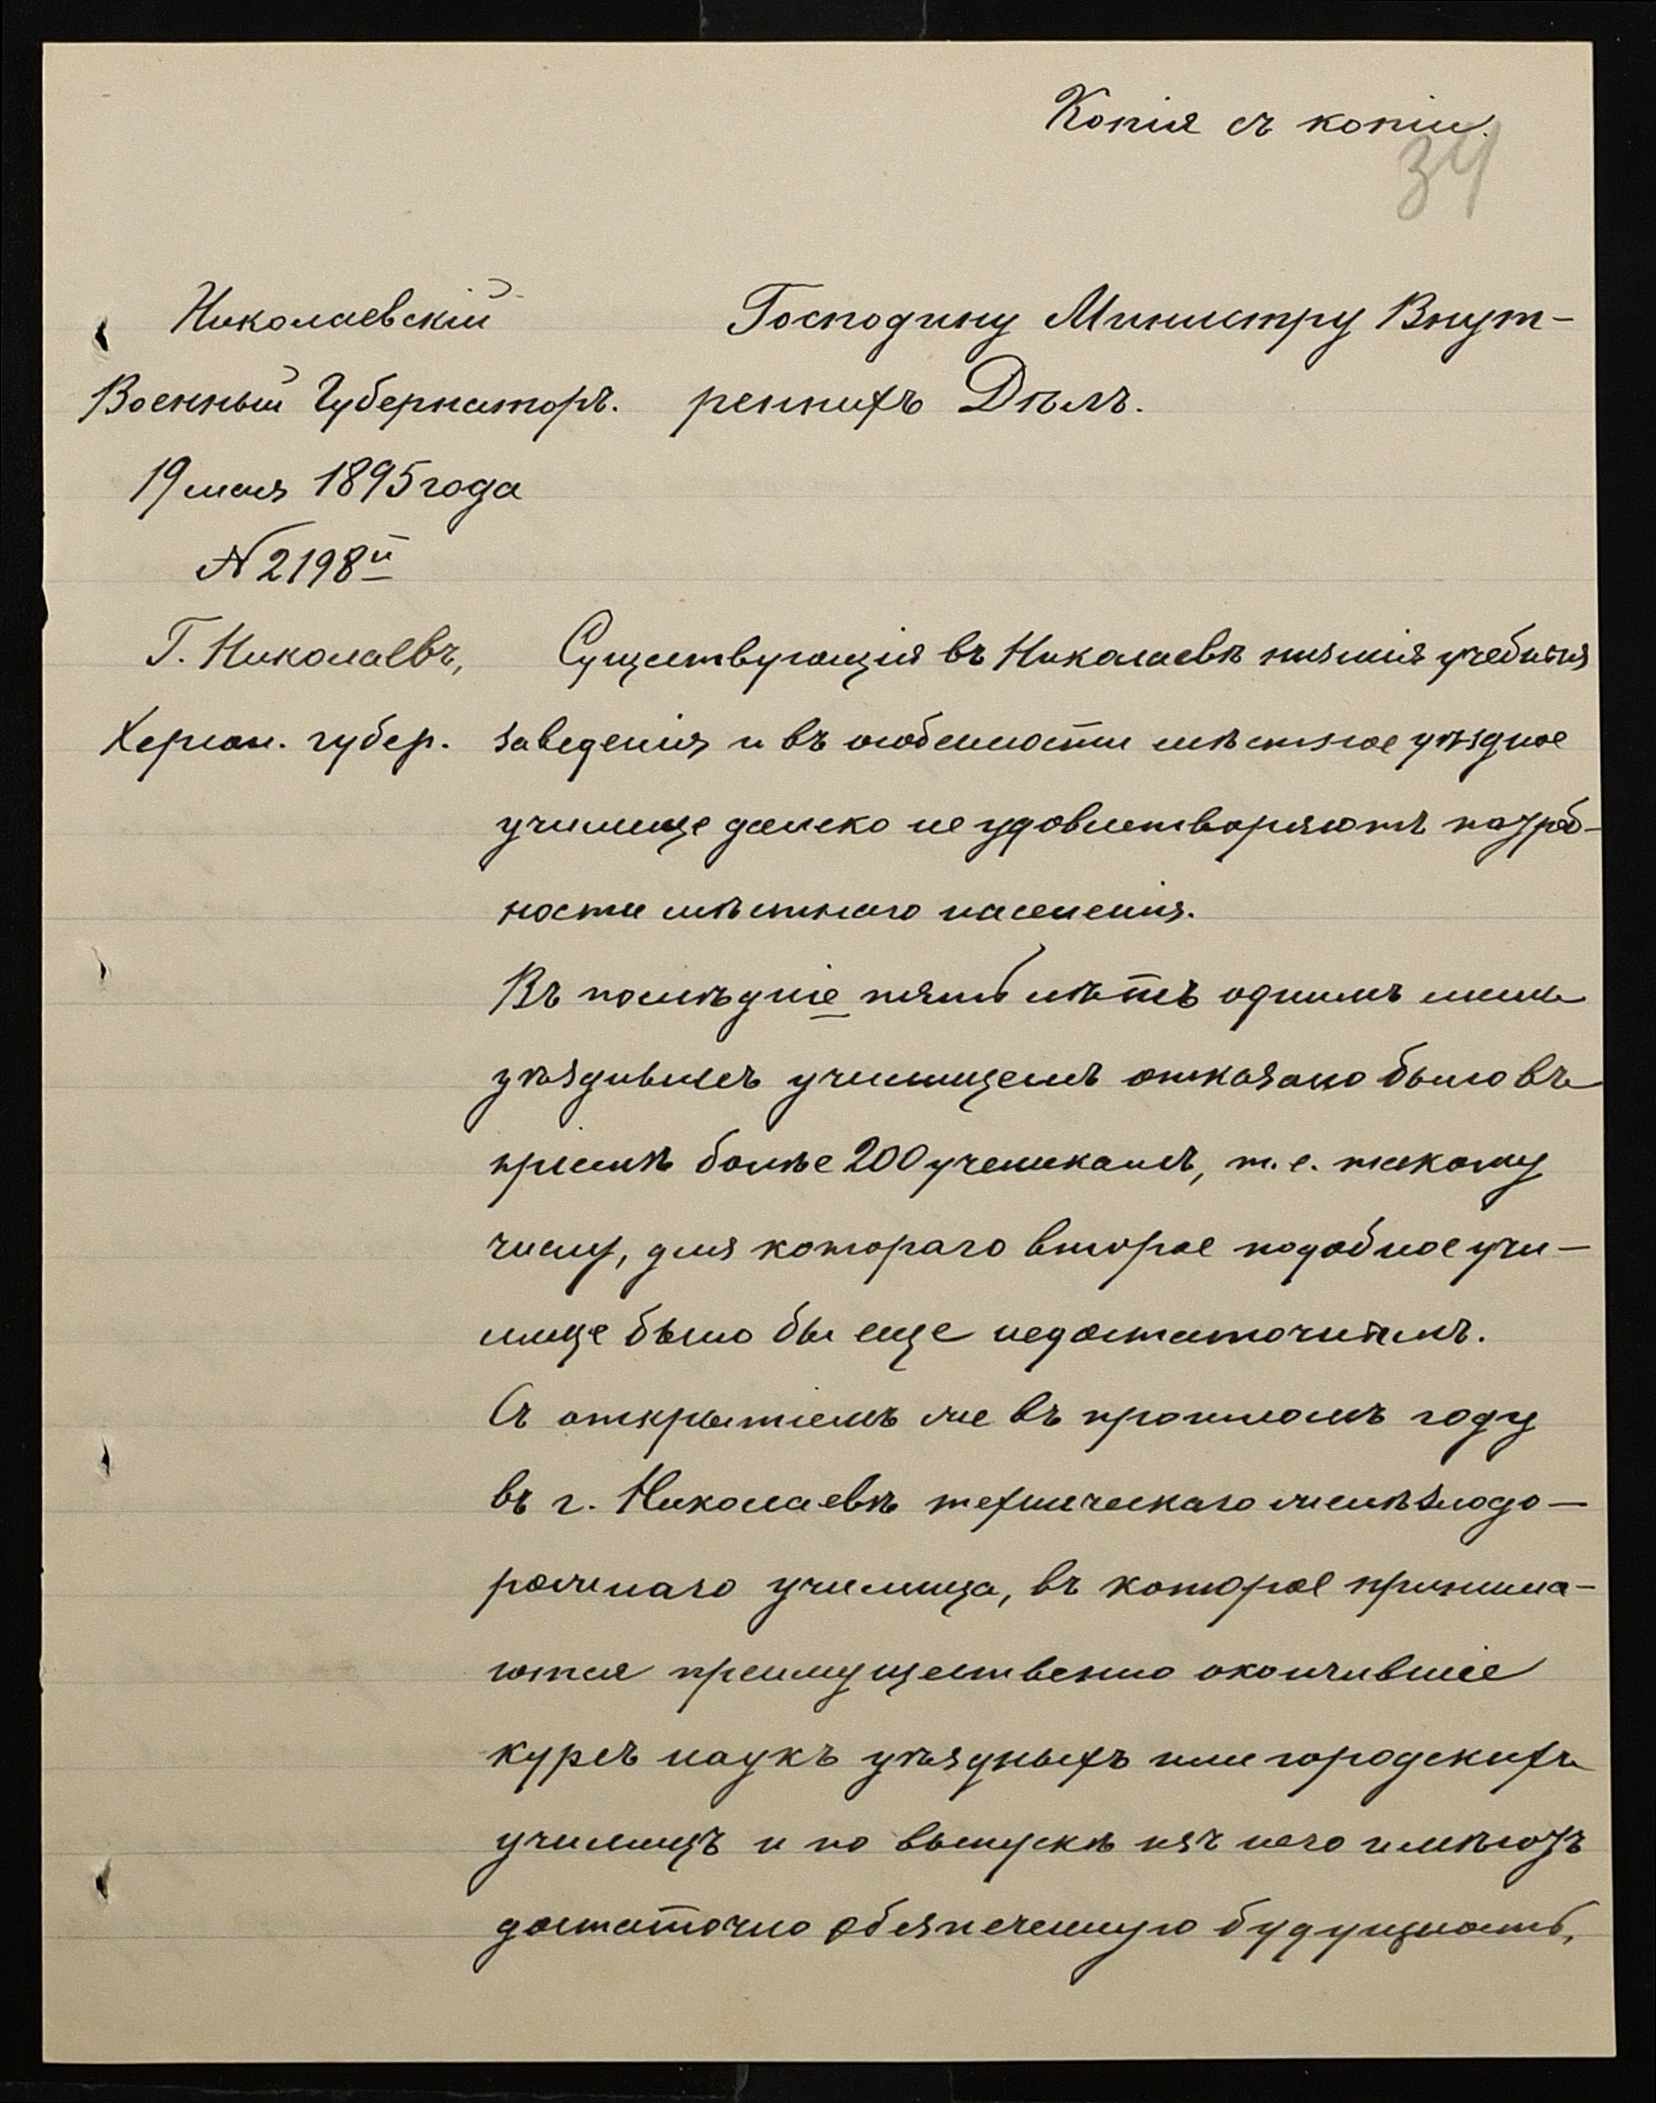 Копія съ копіи.
34
Николаевскій
Военный Губернаторъ.
19 мая 1895 года
№ 2198й
Г. Николаевъ,
Херсон. губер.
Господину Министру Внут-
реннихъ Дѣлъ.
Существующія въ Николаевѣ низшія учебныя
заведенія и въ особенности мѣстное уѣздное
училище далеко не удовлетворяютъ потреб-
ности мѣстнаго населенія.
Въ послѣдніе пять лѣтъ однимъ лишь
уѣзднымъ училищемъ отказано было въ
пріемѣ болѣе 200 ученикамъ, т. е. такому
числу, для котораго второе подобное учи-
лище было бы еще недостаточнымъ.
Съ открытіемъ же въ прошломъ году
въ г. Николаевѣ техническаго желѣзнодо-
рожнаго училища, въ которое принима-
ются преимущественно окончившіе
курсъ наукъ уѣздныхъ или городскихъ
училищъ и по выпускѣ изъ него имѣютъ
достаточно обезпеченную будущность,